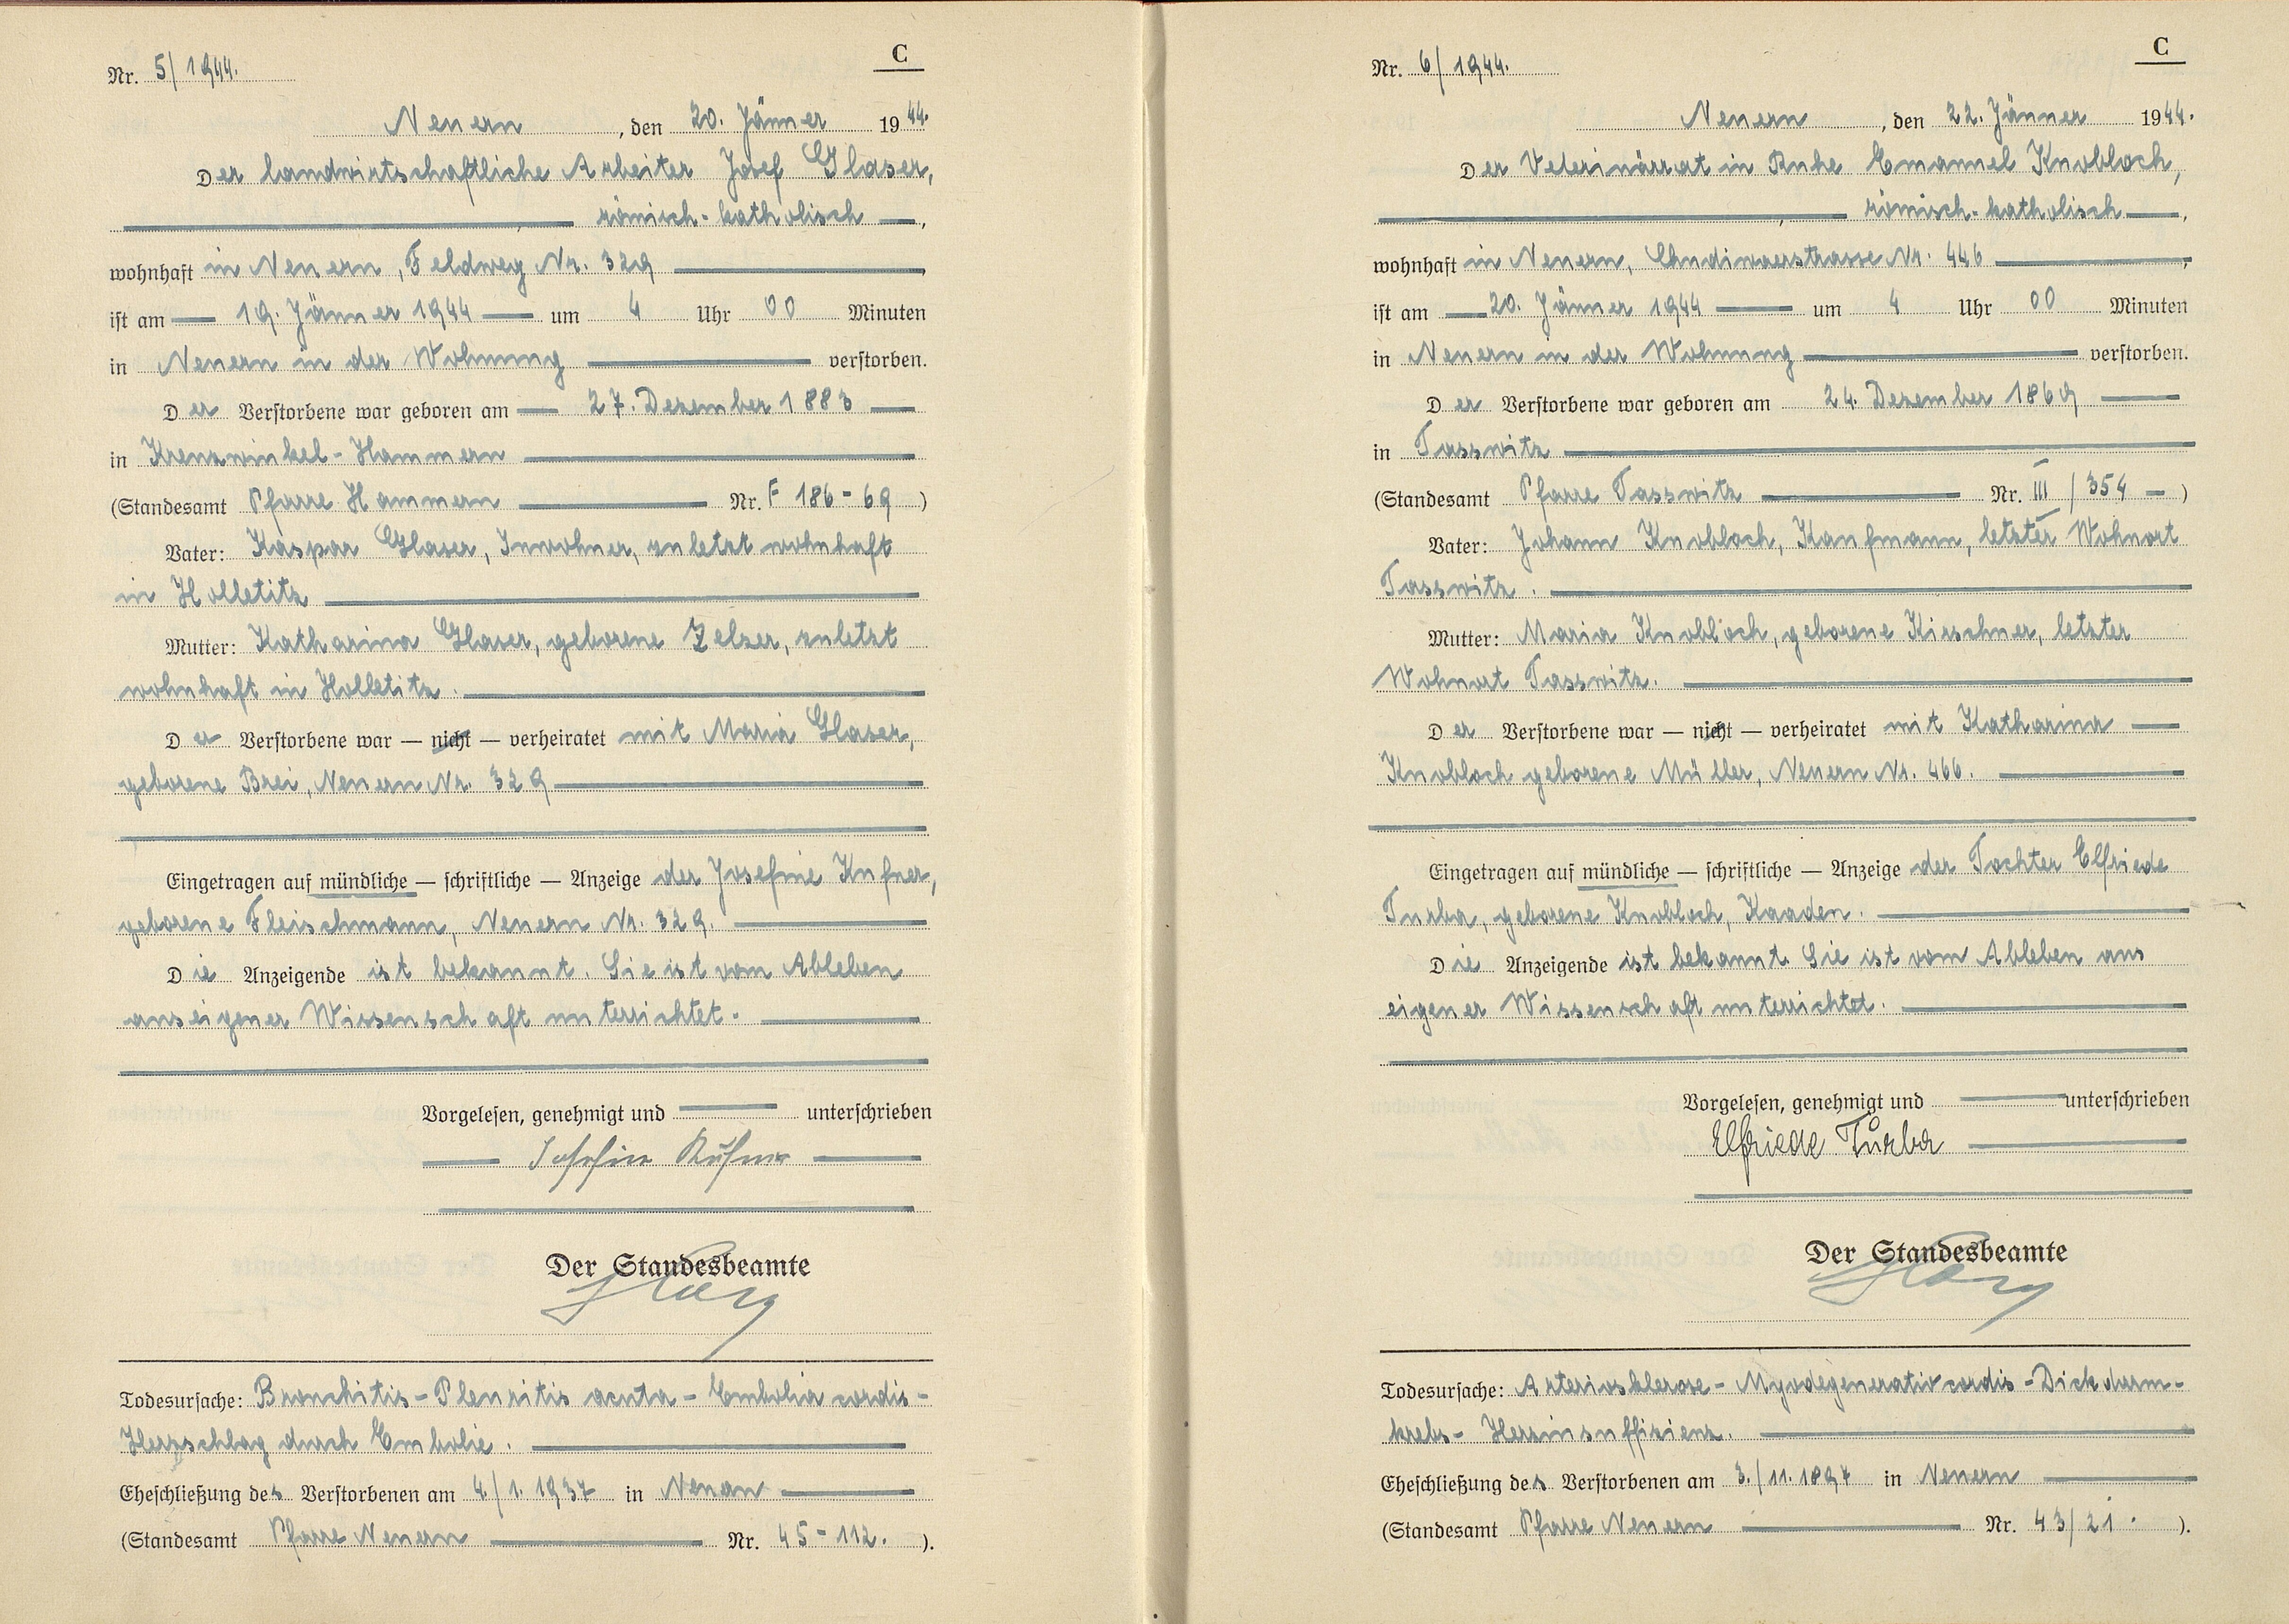 C
Nr. 5/1944.
Neuern, den 20. Jänner 1944.
Der landwirtschaftliche Arbeiter Josef Glaser,
römisch-katholisch,
wohnhaft in Neuern, Feldweg Nr. 329
ist am 19. Jänner 1944 um 4 Uhr 00 Minuten
in Neuern in der Wohnung verstorben.
Der Verstorbene war geboren am 27. Dezember 1883
in Kreuzwinkel-Hammern
(Standesamt Pfarre Hammern Nr. F 186-69)
Vater: Kaspar Glaser, Inwohner, zuletzt wohnhaft
in Holletitz
Mutter: Katharina Glaser, geborene Zelzer, zuletzt
wohnhaft in Holletitz.
Der Verstorbene war — nicht — verheiratet mit Maria Glaser,
geborene Brei, Neuern Nr. 329
Eingetragen auf mündliche — schriftliche — Anzeige der Josefine Kufner,
geborene Fleischmann, Neuern Nr. 329.
Die Anzeigende ist bekannt. Sie ist vom Ableben
aus eigener Wissenschaft unterrichtet.
Vorgelesen, genehmigt und unterschrieben
Josefine Kufner
Der Standesbeamte
Todesursache: Bronchitis - Pleuritis acuta - Embolia cordis -
Herzschlag durch Embolie.
Eheschließung des Verstorbenen am 4./1. 1937 in Neuern
(Standesamt Pfarre Neuern Nr. 45-112. ).
C
Nr. 6/1944.
Neuern, den 22. Jänner 1944.
Der Veterinärrat in Ruhe Emanuel Knobloch,
römisch-katholisch,
wohnhaft in Neuern, Chudiwaerstrasse Nr. 446,
ist am 20. Jänner 1944 um 4 Uhr 00 Minuten
in Neuern in der Wohnung verstorben.
Der Verstorbene war geboren am 24. Dezember 1869
in Tasswitz
(Standesamt Pfarre Tasswitz Nr. III/354)
Vater: Johann Knobloch, Kaufmann, letzter Wohnort
Tasswitz.
Mutter: Maria Knobloch, geborene Kirschner, letzter
Wohnort Tasswitz.
Der Verstorbene war — nicht — verheiratet mit Katharina
Knobloch geborene Müller, Neuern Nr. 466.
Eingetragen auf mündliche — schriftliche — Anzeige der Tochter Elfriede
Turba, geborene Knobloch, Kaaden.
Die Anzeigende ist bekannt. Sie ist vom Ableben aus
eigener Wissenschaft unterrichtet.
Vorgelesen, genehmigt und unterschrieben
Elfriede Turba
Der Standesbeamte
Todesursache: Arteriosklerose - Myodegenerativ cordis - Dickdarm-
krebs - Herzinsuffizienz.
Eheschließung des Verstorbenen am 3./11. 1897 in Neuern
(Standesamt Pfarre Neuern Nr. 43/21. ).